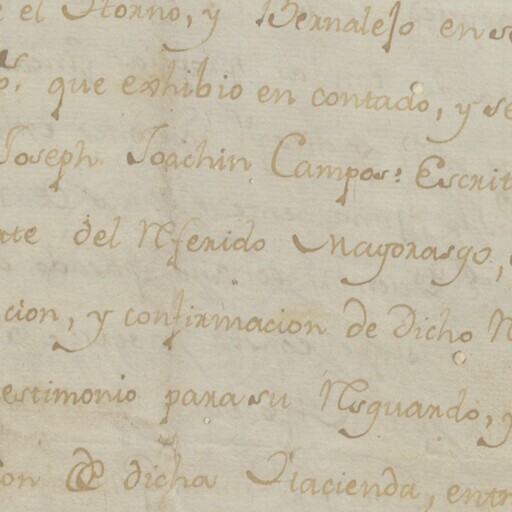 e el Horno, y Bernalejo en se
o. que exhibio en contado, y se
Joseph Joachin Campos: Escrit
nte del Referido Mayorasgo,
cion, y confirmacion de dicho R
estimonio para su Resguardo, y
on de dicha Hacienda, entr